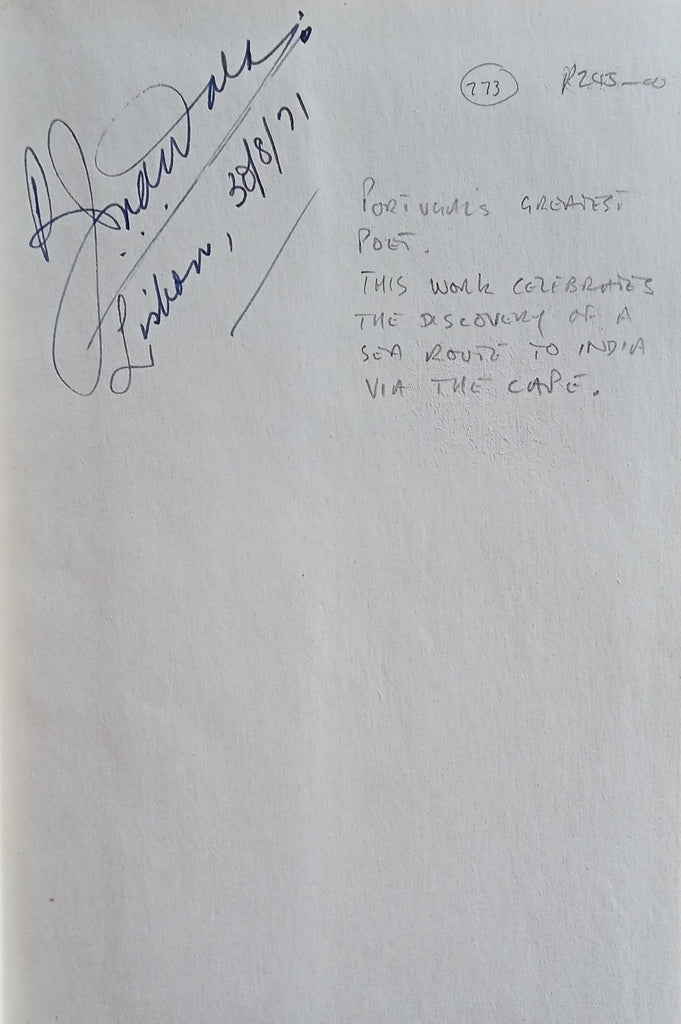 Lisbon, 30/8/71
773 R245—00
PORTUGAL'S GREATEST
POET.
THIS WORK CELEBRATES
THE DISCOVERY OF A
SEA ROUTE TO INDIA
VIA THE CAPE.